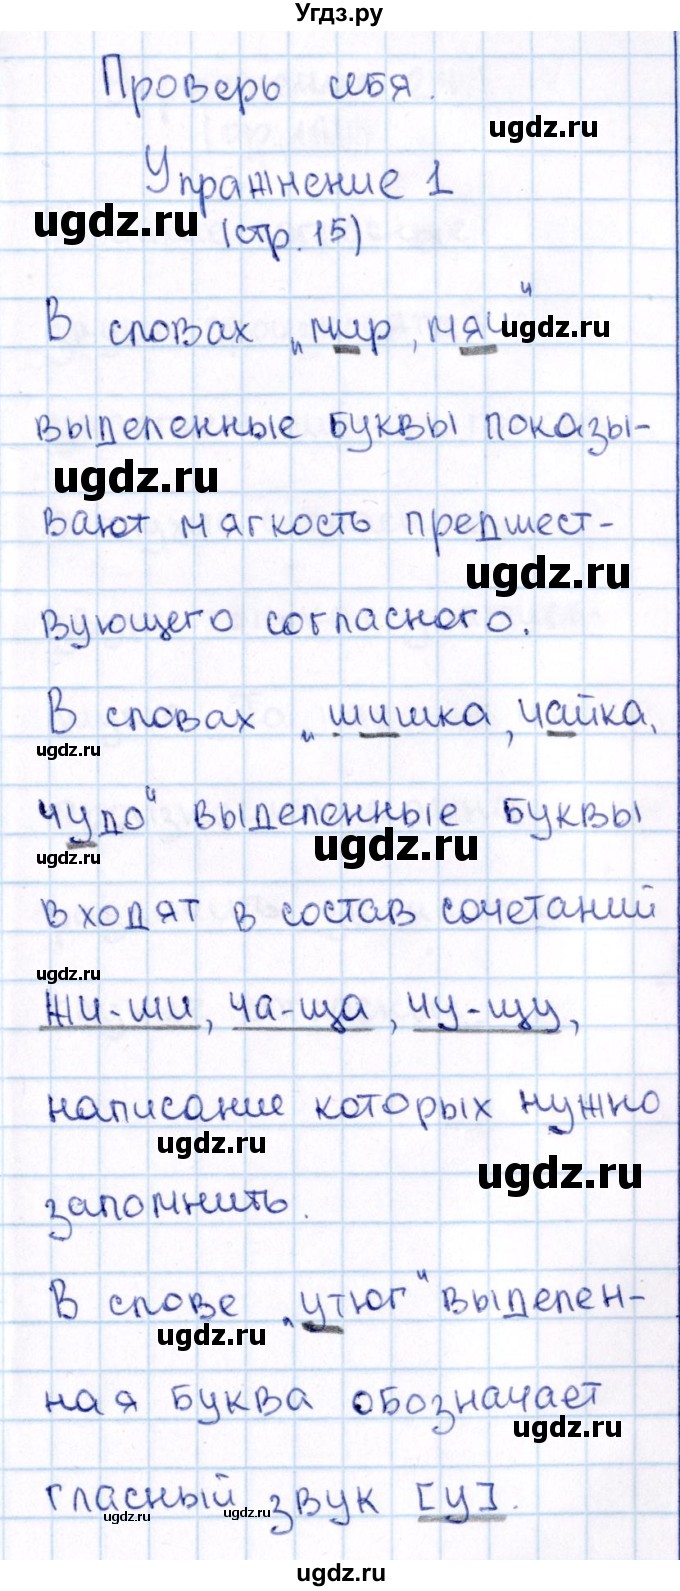 Угдз.ру
Проверь себя.
ugdz.ru
Упражнение 1
ugdz.ru
(стр. 15)
В словах „мир, мяч"
ugdz.ru
выделенные буквы показы-
ugdz.ru
вают мягкость предшест-
ugdz.ru
вующего согласного.
В словах „шишка, чайка,
ugdz.ru
чудо" выделенные буквы
ugdz.ru
ugdz.ru
входят в состав сочетаний
ugdz.ru
жи-ши, ча-ща, чу-щу,
написание которых нужно
ugdz.ru
ugdz.ru
запомнить.
В слове „утюг" выделен-
ugdz.ru
ная буква обозначает
ugdz.ru
гласный звук [у].
ugdz.ru
ugdz.ru
ugdz.ru